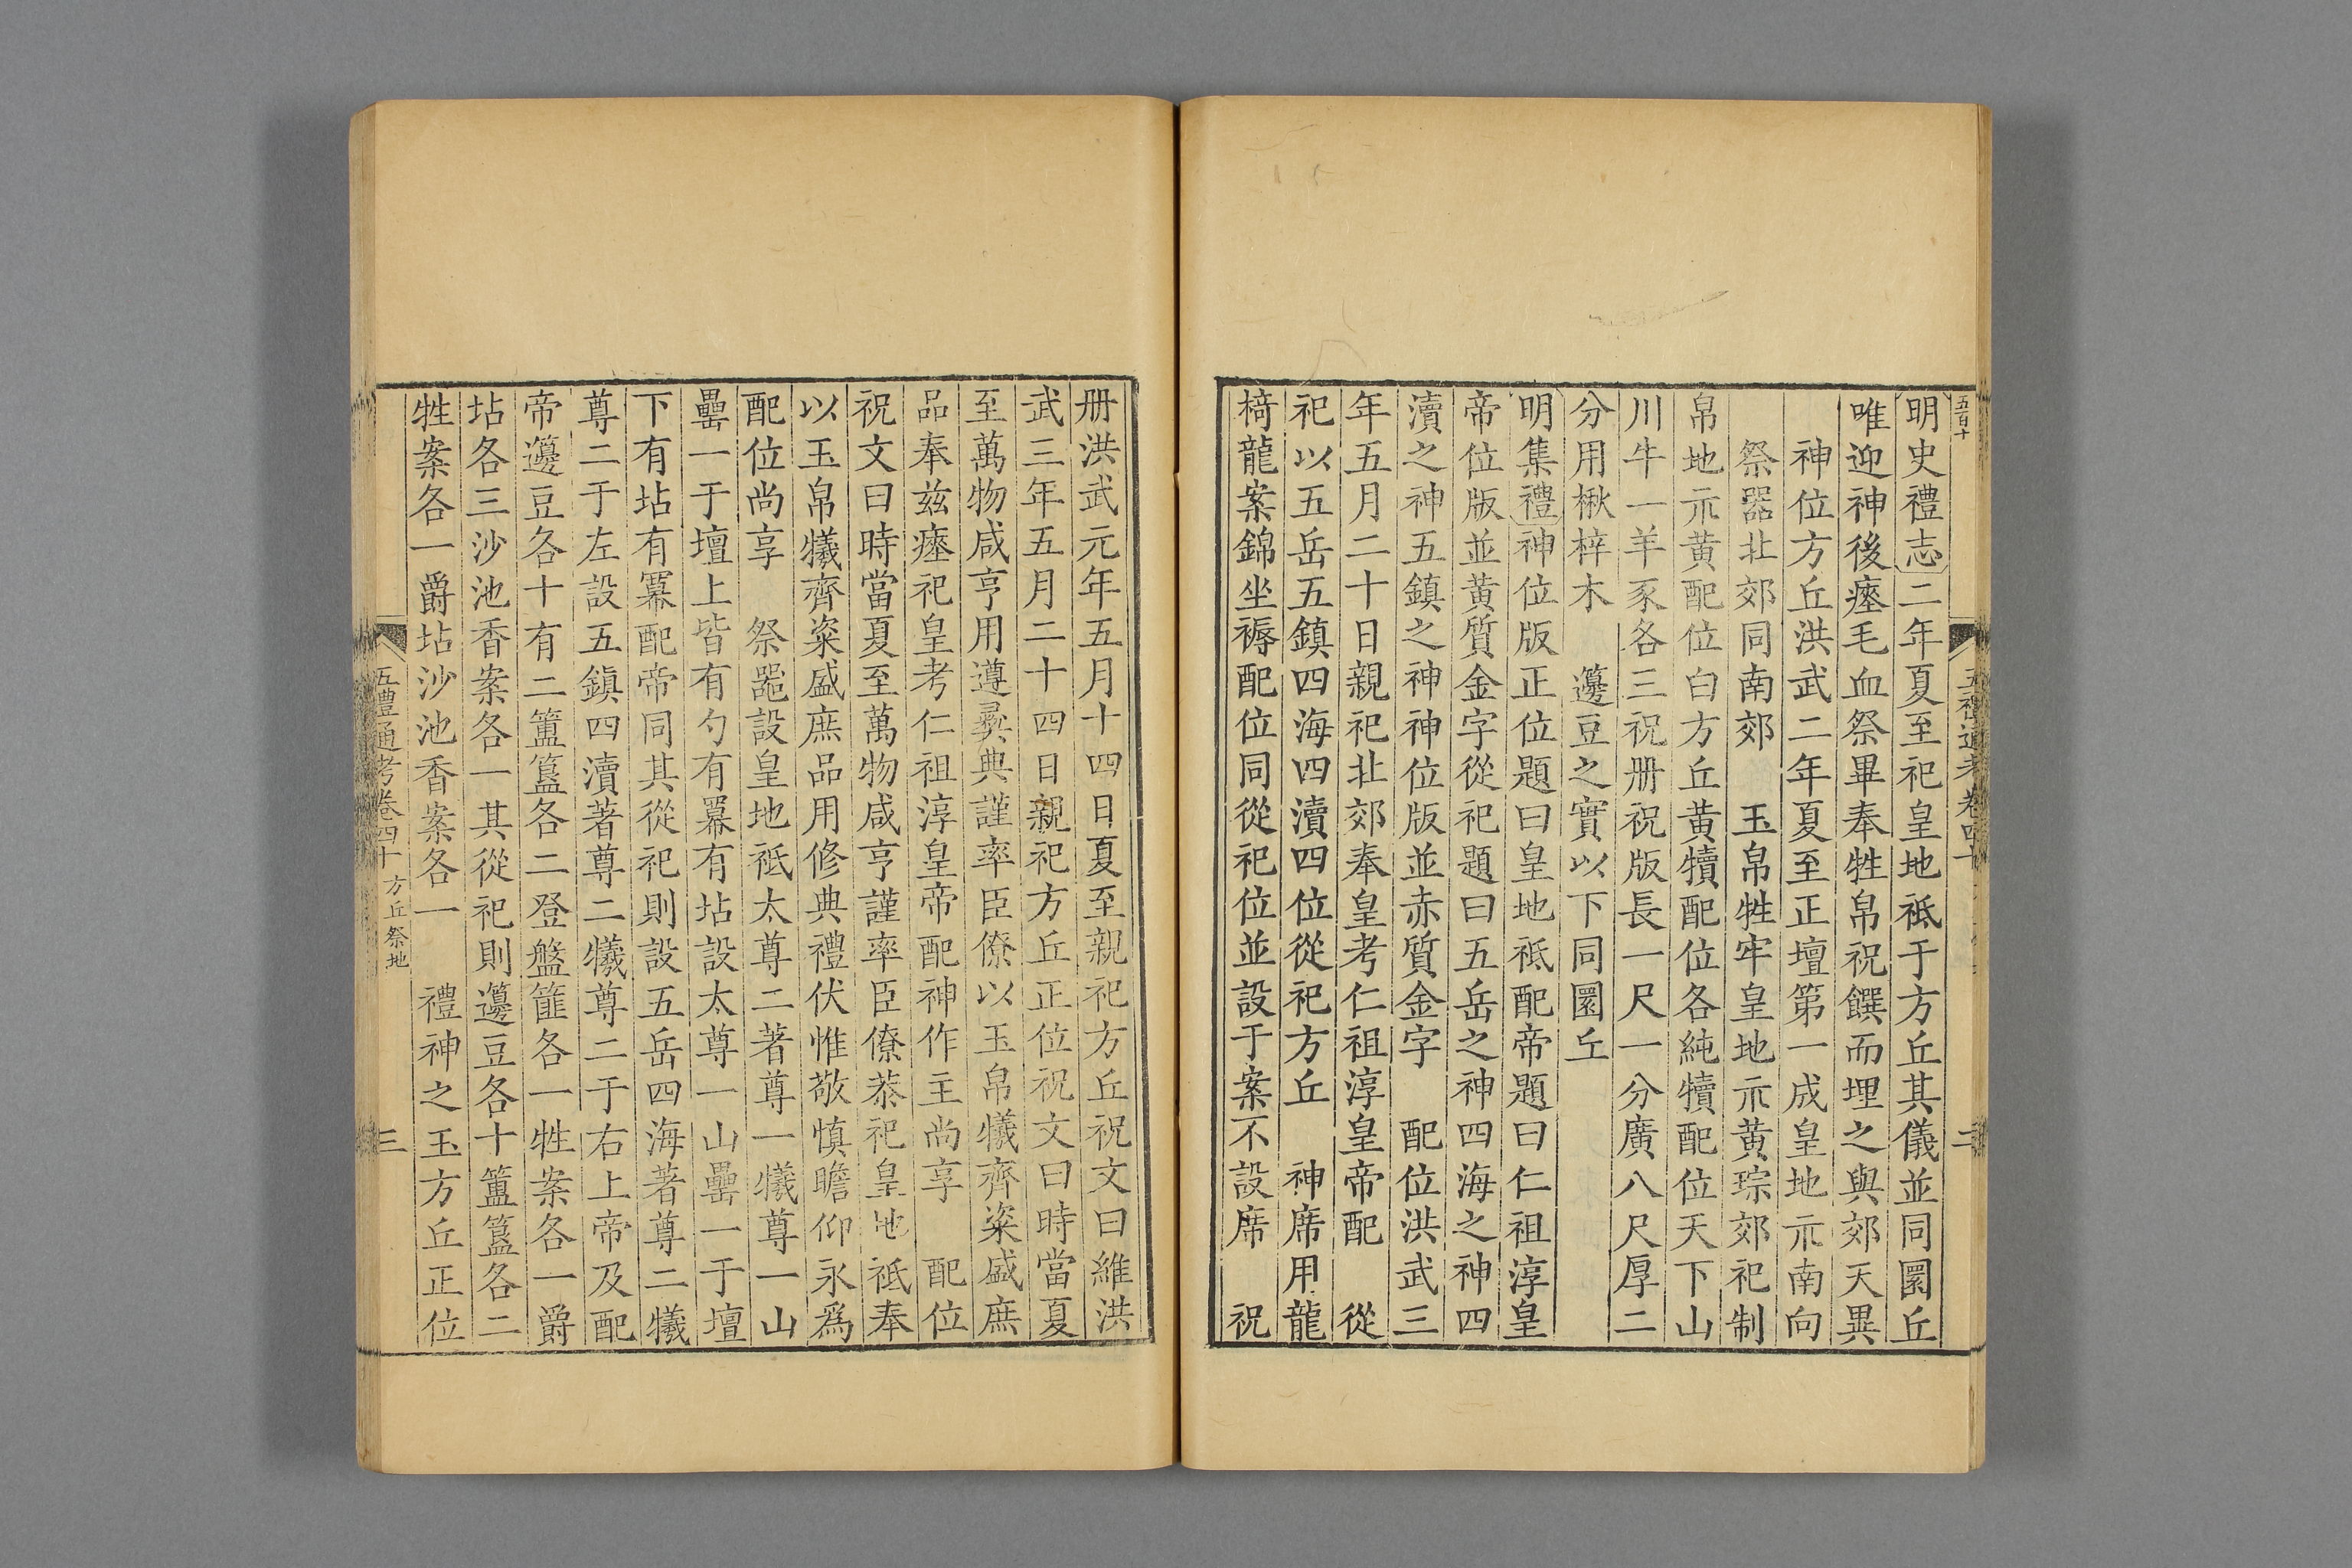 五百十
五禮通考卷四十
二
明史禮志二年夏至祀皇地祗于方丘其儀並同圜丘
唯迎神後瘞毛血祭畢奉牲帛祝饌而埋之與郊天異
神位方丘洪武二年夏至正壇第一成皇地示南向
祭器北郊同南郊　玉帛牲牢皇地示黃琮郊祀制
帛地示黃配位白方丘黃犢配位各純犢配位天下山
川牛一羊豕各三祝册祝版長一尺一分廣八尺厚二
分用楸梓木　籩豆之實以下同圜丘
明集禮神位版正位題曰皇地祗配帝題曰仁祖淳皇
帝位版並黃質金字從祀題曰五岳之神四海之神四
瀆之神五鎮之神神位版並赤質金字　配位洪武三
年五月二十日親祀北郊奉皇考仁祖淳皇帝配　從
祀以五岳五鎮四海四瀆四位從祀方丘　神席用龍
椅龍案錦坐褥配位同從祀位並設于案不設席　祝
册洪武元年五月十四日夏至親祀方丘祝文曰維洪
武三年五月二十四日親祀方丘正位祝文曰時當夏
至萬物咸亨用遵彞典謹率臣僚以玉帛犧齊粢盛庶
品奉茲瘞祀皇考仁祖淳皇帝配神作主尚享　配位
祝文曰時當夏至萬物咸亨謹率臣僚恭祀皇地祗奉
以玉帛犧齊粢盛庶品用修典禮伏惟敬慎瞻仰永爲
配位尚享　祭器設皇地祗太尊二著尊一犧尊一山
罍一于壇上皆有勺有羃有坫設太尊一山罍一于壇
下有坫有羃配帝同其從祀則設五岳四海著尊二犧
尊二于左設五鎮四瀆著尊二犧尊二于右上帝及配
帝籩豆各十有二簠簋各二登盤篚各一牲案各一爵
坫各三沙池香案各一其從祀則籩豆各十簠簋各二
牲案各一爵坫沙池香案各一　禮神之玉方丘正位
五禮通考卷四十 方丘祭地
三